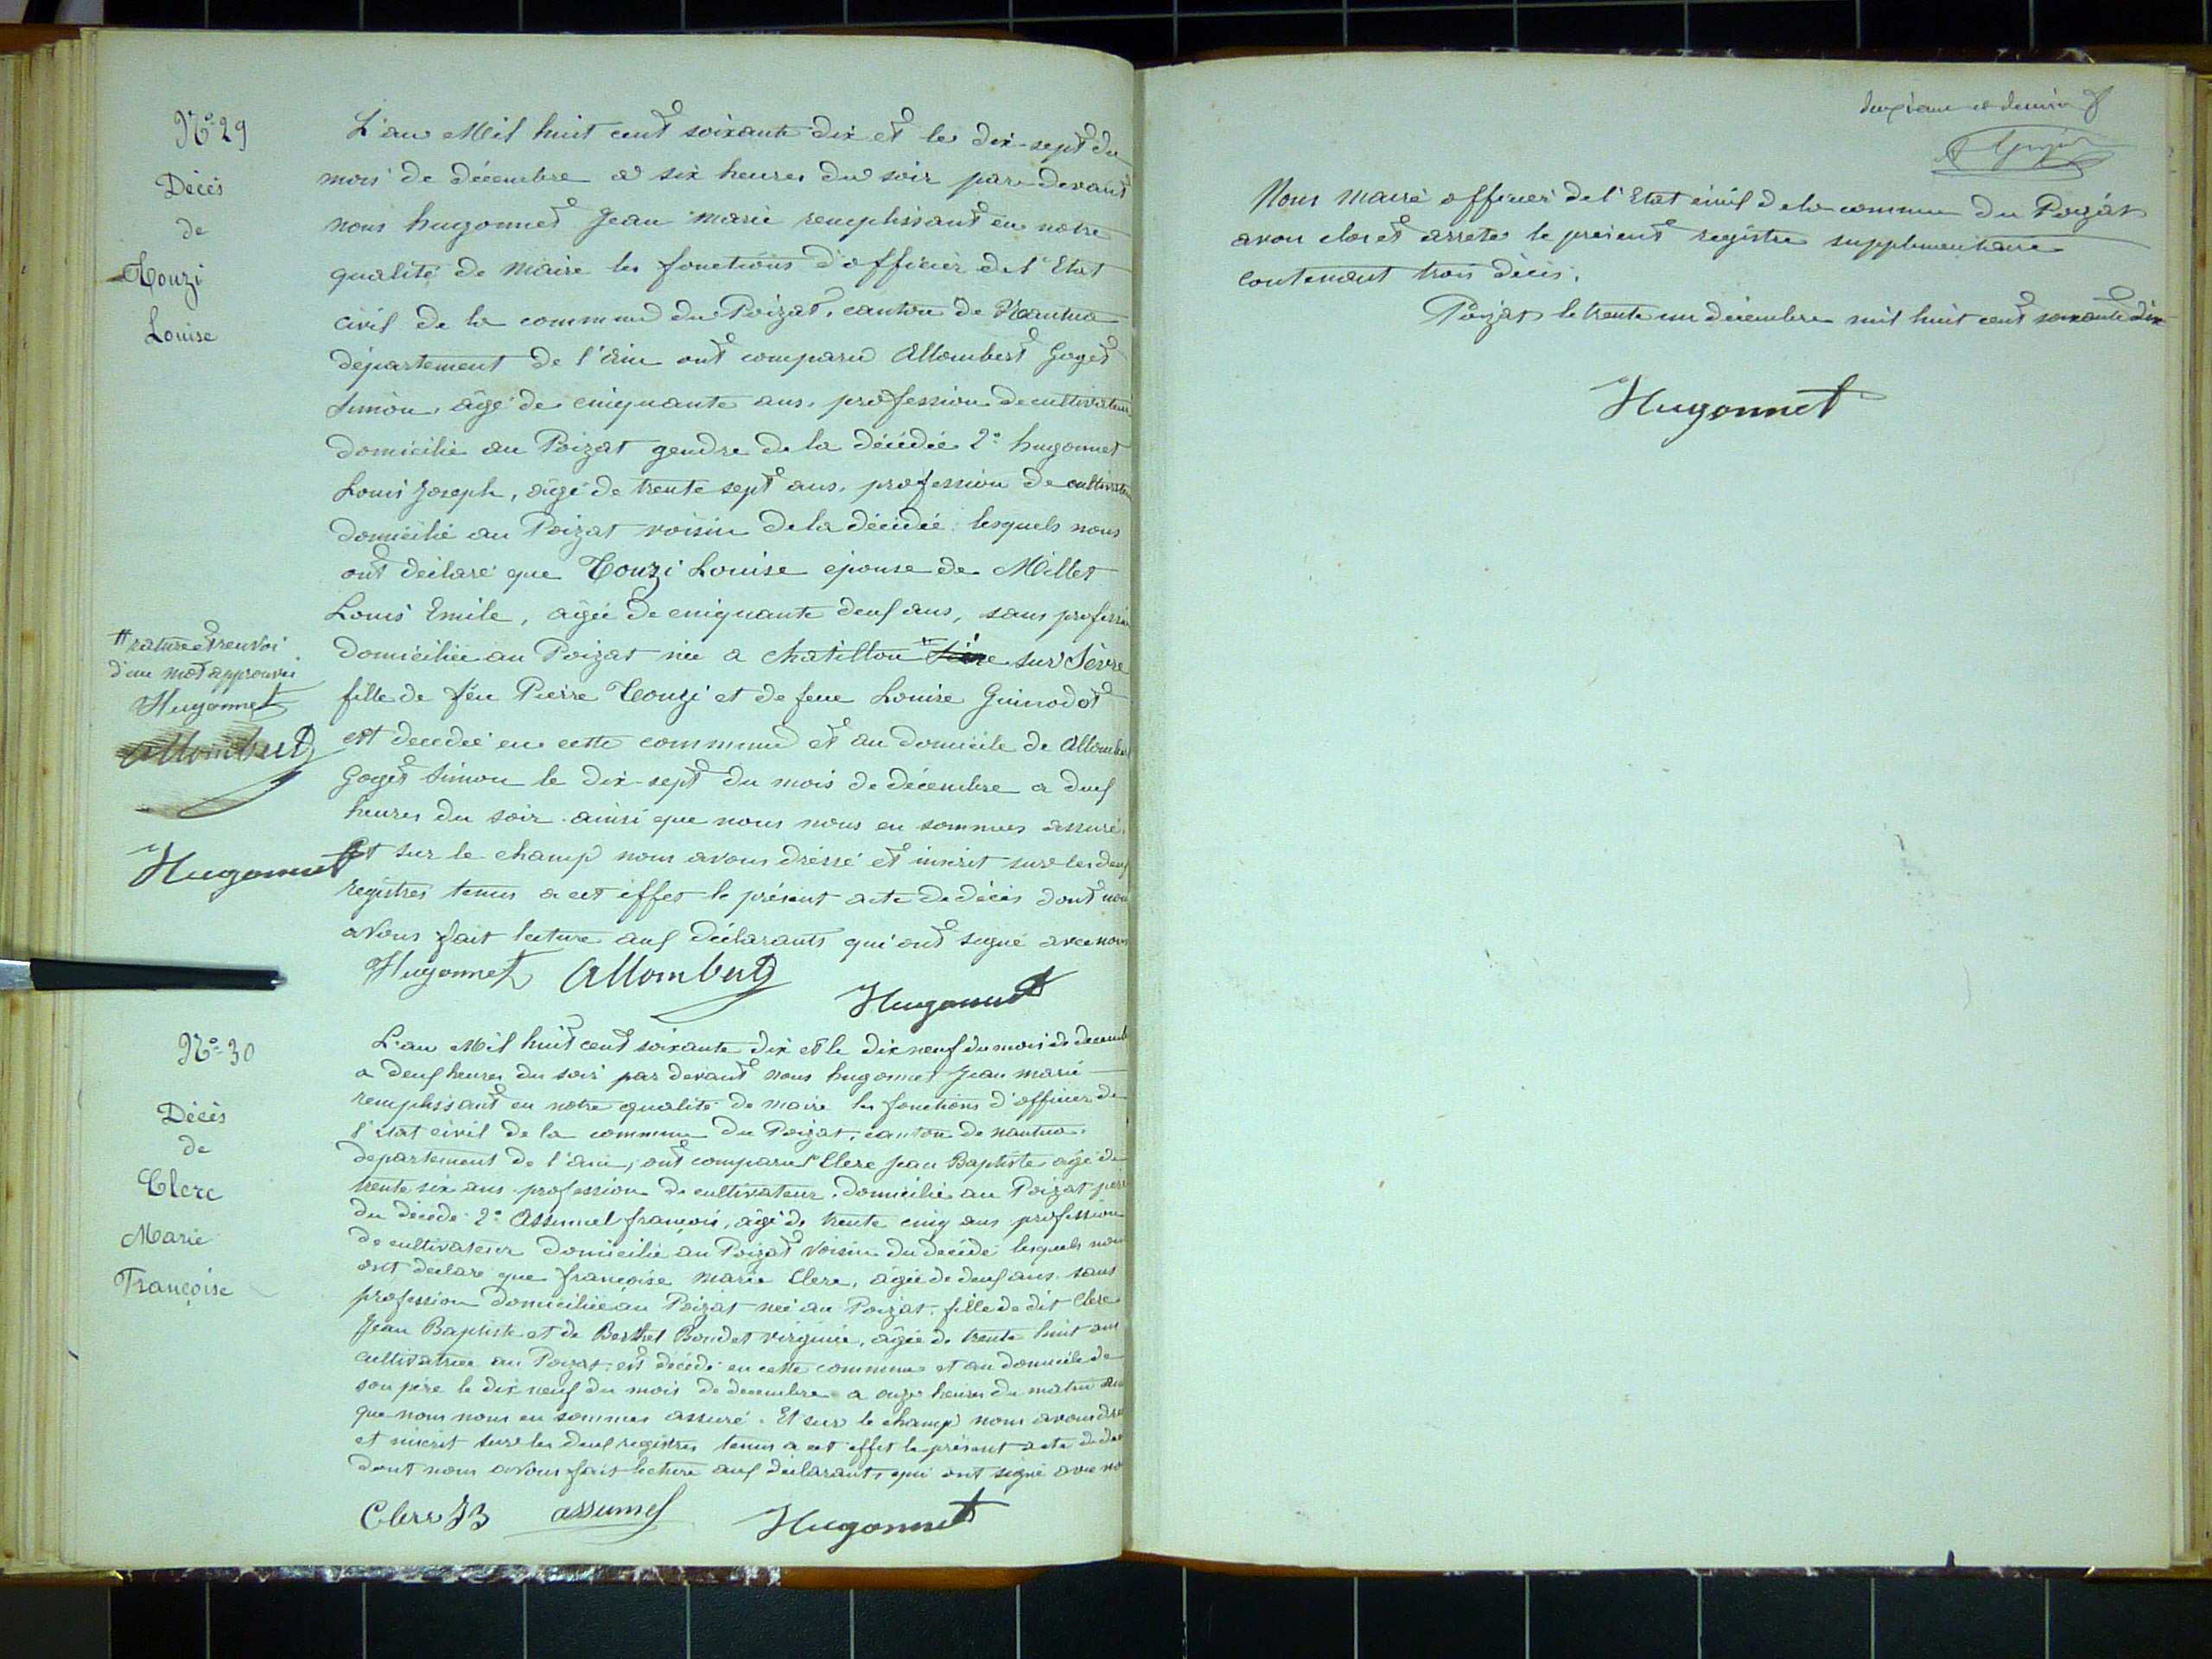 N° 29
Décès
de
Touzi
Louise
L'an Mil huit cent soixante dix et le dix-sept du
mois de décembre a six heures du soir par devant
nous hugonnet Jean Marie remplissant en notre
qualité de Maire les fonctions d'officier de l'Etat
civil de la commune du Poizat, canton de Nantua
département de l'Ain ont comparu Allombert Goget
Simon, âgé de cinquante ans, profession de cultivateur
domicilié au Poizat gendre de la décédée 2° hugonnet
Louis Joseph, âgé de trente sept ans, profession de cultivateur
domicilié au Poizat voisin de la décédée lesquels nous
ont déclaré que Touzi Louise epouse de Millet
Louis Emile, agée de cinquante deux ans, sans profession
domiciliée au Poizat née a chatillon sur Sèvre
fille de feu Pierre Touzi et de feue Louise Guinodot
est decedée en cette commune et au domicile de Allombert
Goget Simon le dix-sept du mois de décembre a deux
heures du soir ainsi que nous nous en sommes assuré.
Et sur le champ nous avons dressé et inscrit sur les deux
registres tenus a cet effet le présent acte de décès dont nous
avons fait lecture aux déclarants qui ont signé avec nous
# rature et renvoi
d'un mot approuvés
Hugonnet
Allombert
Hugonnet
Hugonnet Allombert Hugonnet
N° 30
Décès
de
Clerc
Marie
Françoise
L'an Mil huit cent soixante dix et le dix neuf du mois de decemb
a deux heures du soir par devant nous hugonnet Jean marie
remplissant en notre qualité de maire les fonctions d'officier de
l'état civil de la commune du Poizat, canton de nantua.
departement de l'ain, ont comparu Clerc Jean Baptiste agé de
trente six ans profession de cultivateur, domicilié au Poizat père
du decedé 2° Assumel françois, âgé de trente cinq ans profession
de cultivateur domicilié au Poizat voisin du decédé lesquels nous
ont déclaré que françoise Marie Clerc, âgée de deux ans sans
profession domiciliée au Poizat née au Poizat, fille de dit Clerc
Jean Baptiste et de Berthet Bondet virginie, âgée de trente huit ans
cultivatrice au Poizat est décédé en cette commune et au domicile de
son père le dix neuf du mois de decembre a onze heures du matin
que nous nous en sommes assuré. Et sur le champ nous avons
et inscrit sur les deux registres tenus a cet effet le présent acte de
dont nous avons fait lecture aux déclarants qui ont signé avec
Clerc JB assumel Hugonnet
deuxième et dernier
Nous Maire officier de l'Etat civil de la commune du Poizat
avons clos et arreté le présent registre supplémentaire
contenant trois décès.
Poizat le trente un décembre mil huit cent soixante dix
Hugonnet